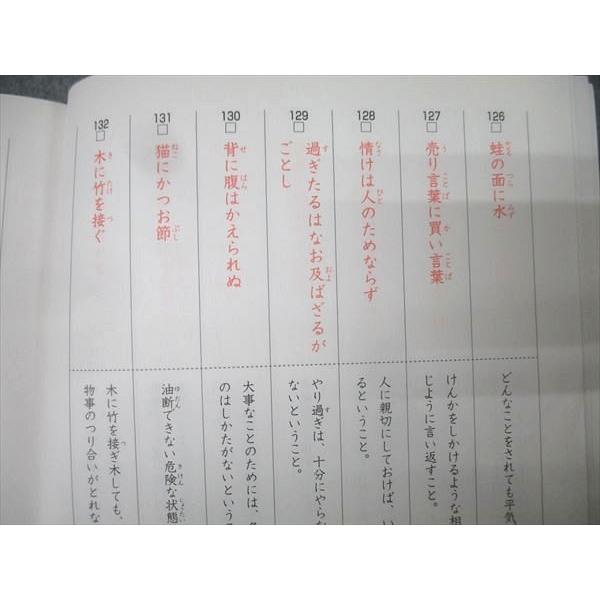 126
蛙の面に水
どんなことをされても平気
127
売り言葉に買い言葉
けんかをしかけるような相
じように言い返すこと。
128
情けは人のためならず
人に親切にしておけば、い
るということ。
129
過ぎたるはなお及ばざるが
ごとし
やり過ぎは、十分にやらな
ないということ。
130
背に腹はかえられぬ
大事なことのためには、
のはしかたがないという
131
猫にかつお節
油断できない危険な状態
132
木に竹を接ぐ
木に竹を接ぎ木しても、
物事のつり合いがとれな